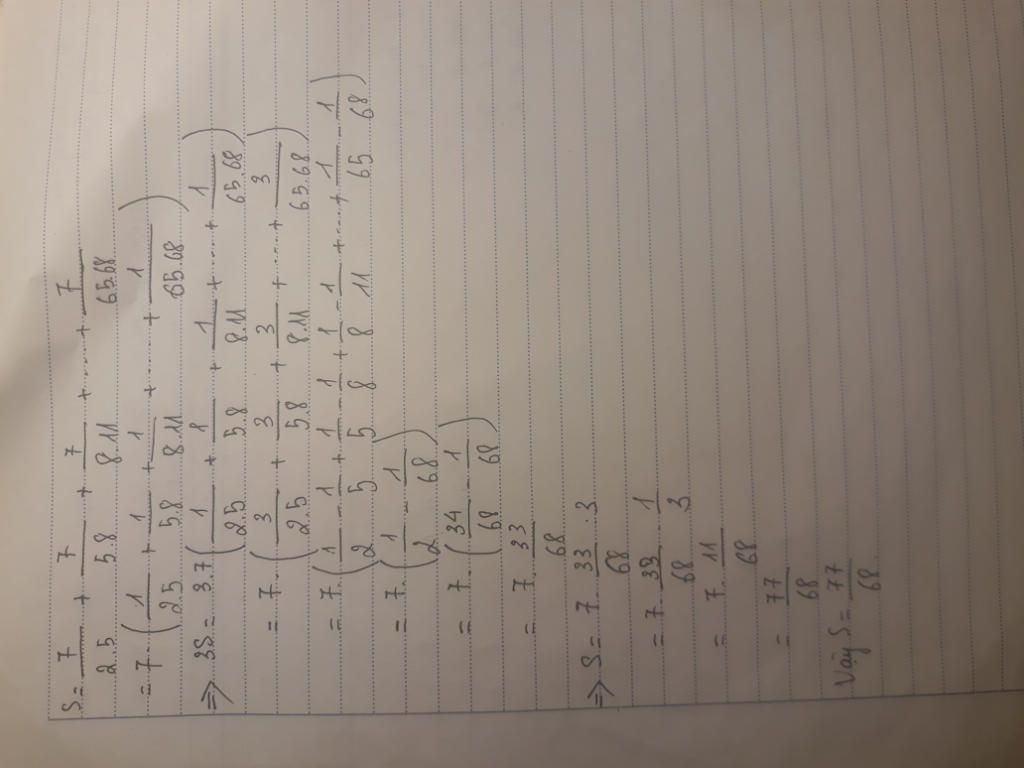 S = 7/2.5 + 7/5.8 + 7/8.11 + ..... + 7/65.68
= 7 . (1/2.5 + 1/5.8 + 1/8.11 + ..... + 1/65.68)
=> 3S = 3.7 (1/2.5 + 1/5.8 + 1/8.11 + ..... + 1/65.68)
= 7 . (3/2.5 + 3/5.8 + 3/8.11 + ..... + 3/65.68)
= 7 . (1/2 - 1/5 + 1/5 - 1/8 + 1/8 - 1/11 + ..... + 1/65 - 1/68)
= 7 . (1/2 - 1/68)
= 7 . (34/68 - 1/68)
= 7 . 33/68
=> S = 7 . 33/68 : 3
= 7 . 33/68 . 1/3
= 7 . 11/68
= 77/68
Vậy S = 77/68